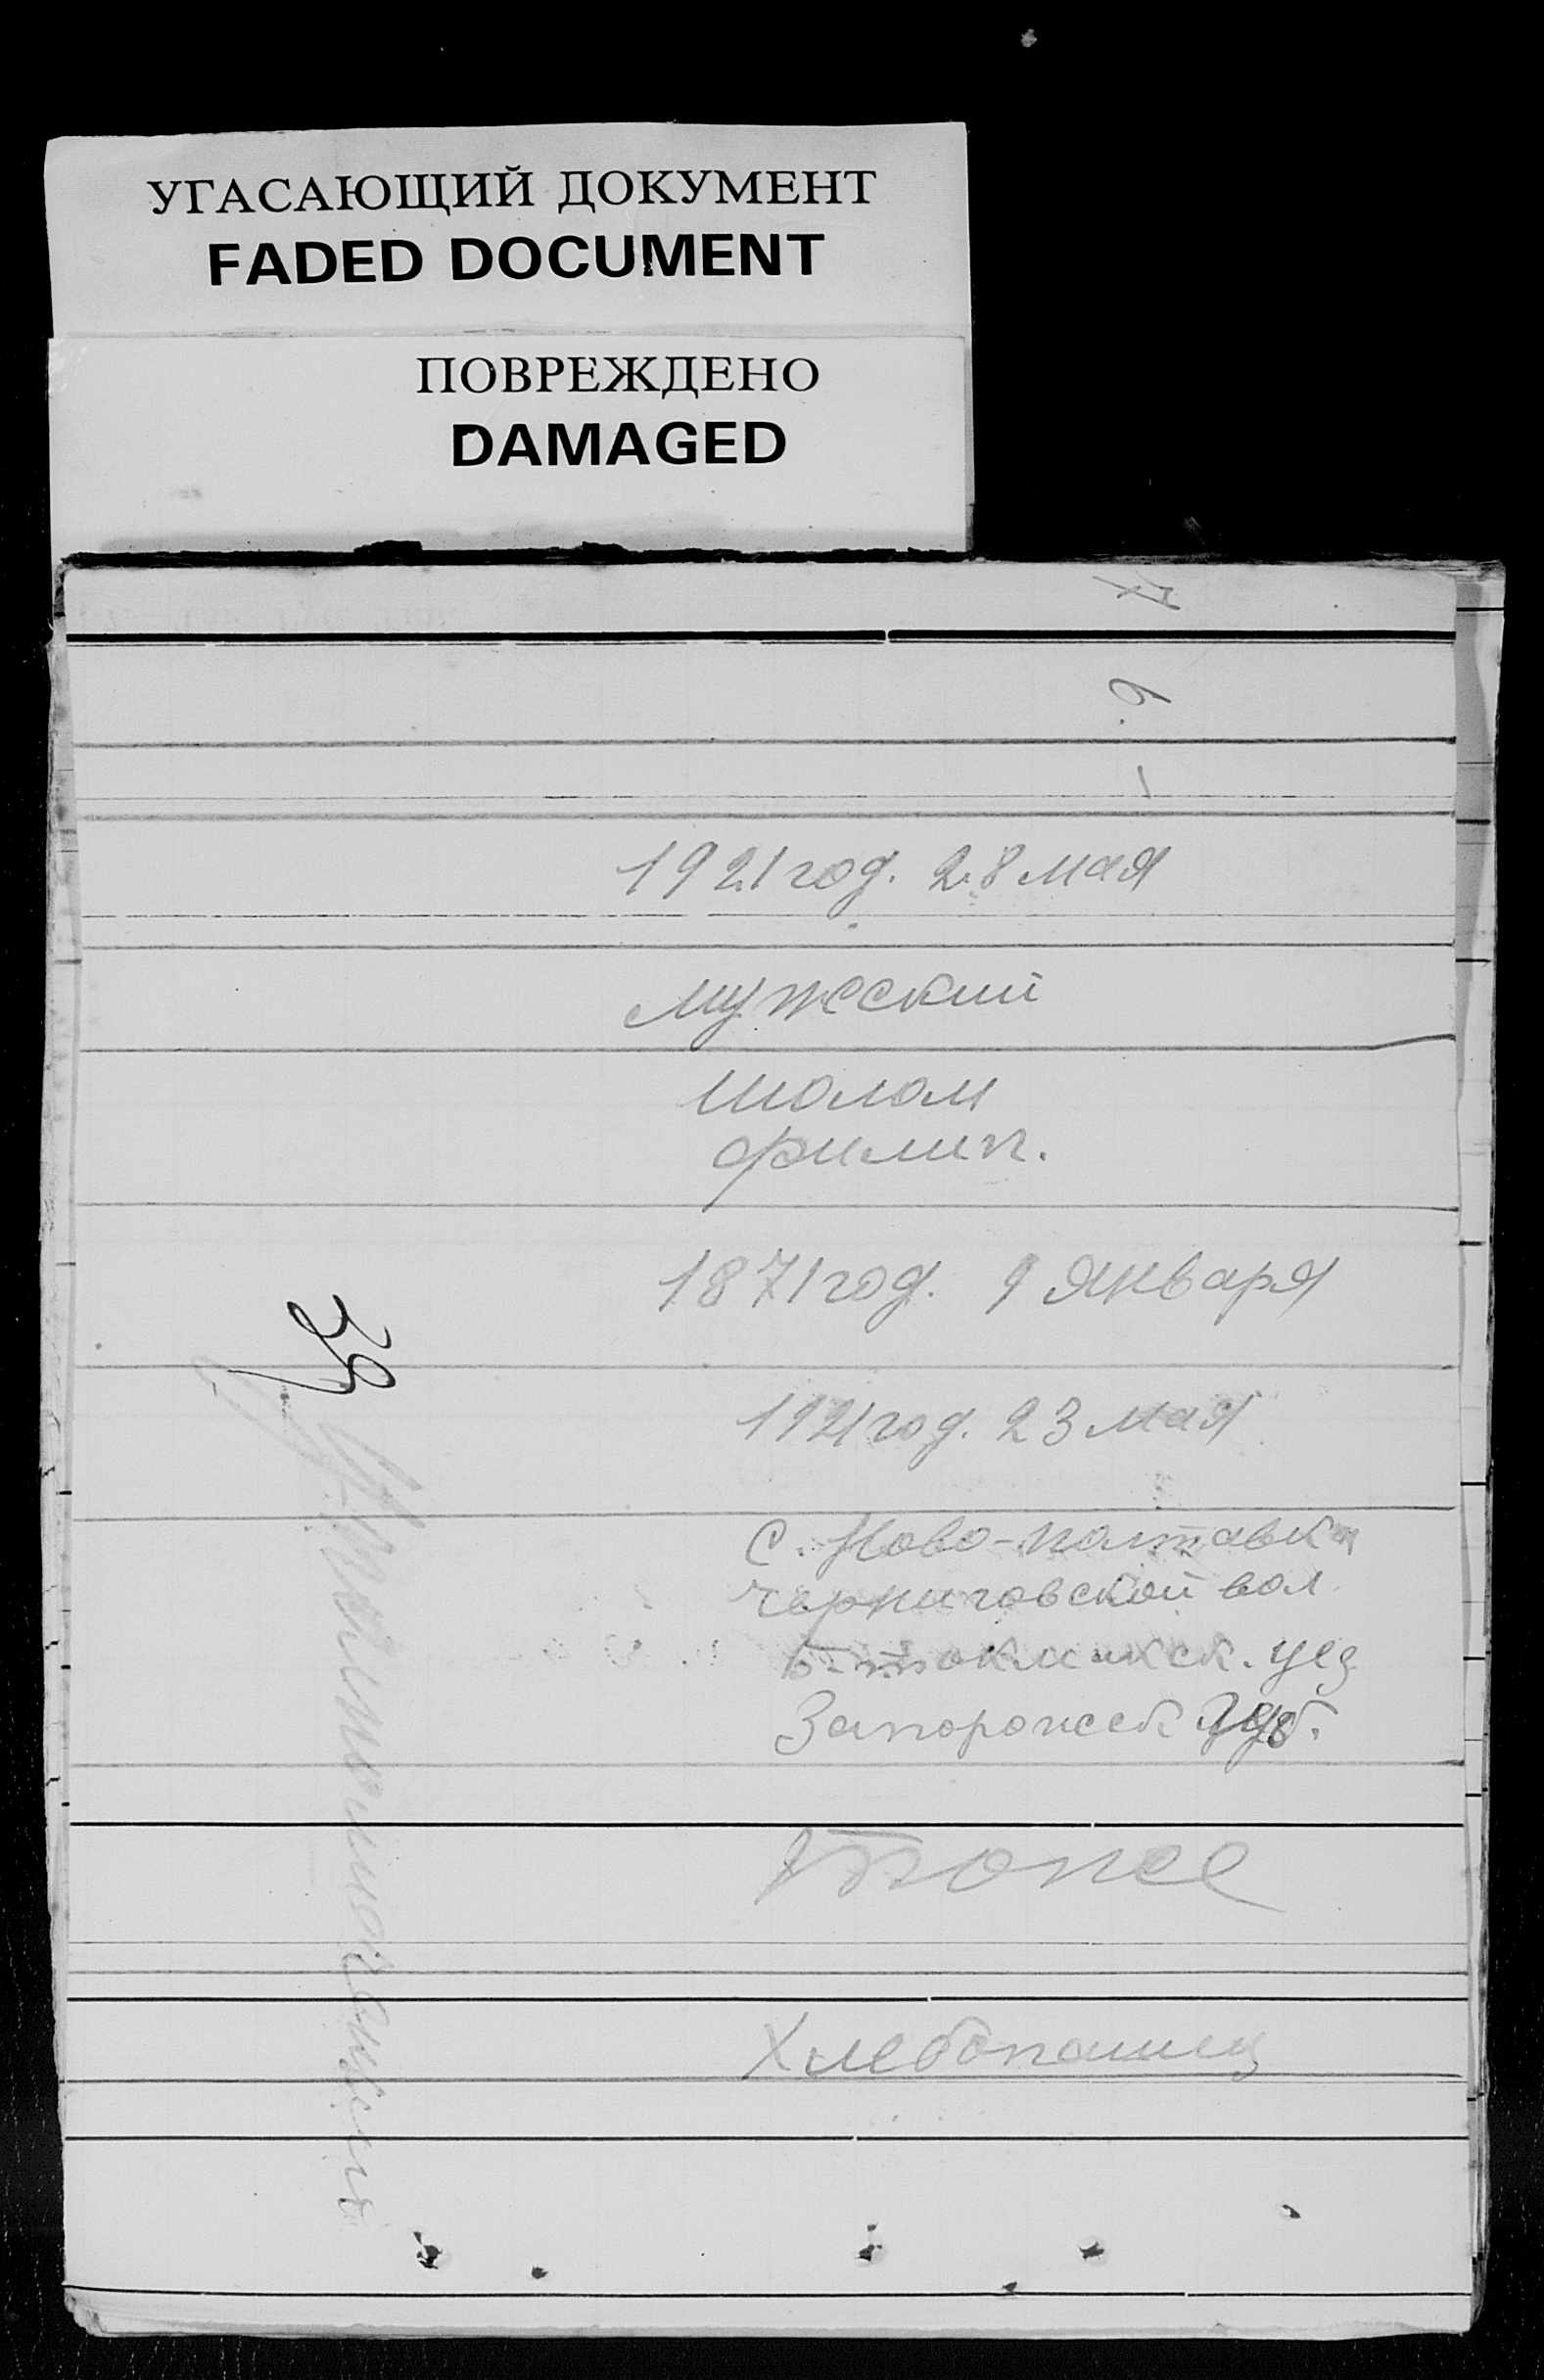 УГАСАЮЩИЙ ДОКУМЕНТ
FADED DOCUMENT
ПОВРЕЖДЕНО
DAMAGED
6.
1921 год. 28 мая
мужеский
шолом
филип.
1871 год. 9 января
1921 год. 23 мая
с. Ново-полтавка
черниговской вол
Б-токмакск. уез
Запорожск губ.
тоже
Хлебопашец